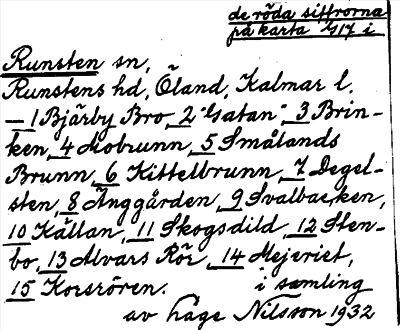 de röda siffrorna
på karta 1/17 i
Runsten sn,
Runstens hd, Öland, Kalmar l.
– 1 Bjärby Bro, 2 "Gatan", 3 Brin-
ken, 4 Mobrunn, 5 Smålands
Brunn, 6 Kittelbrunn, 7 Degel-
sten, 8 Änggården, 9 Svalbacken,
10 Källan, 11 Skogsdild, 12 Sten-
bo, 13 Alvars Rör, 14 Mejeriet,
15 Korsrören. i samling
av Håge Nilsson 1932